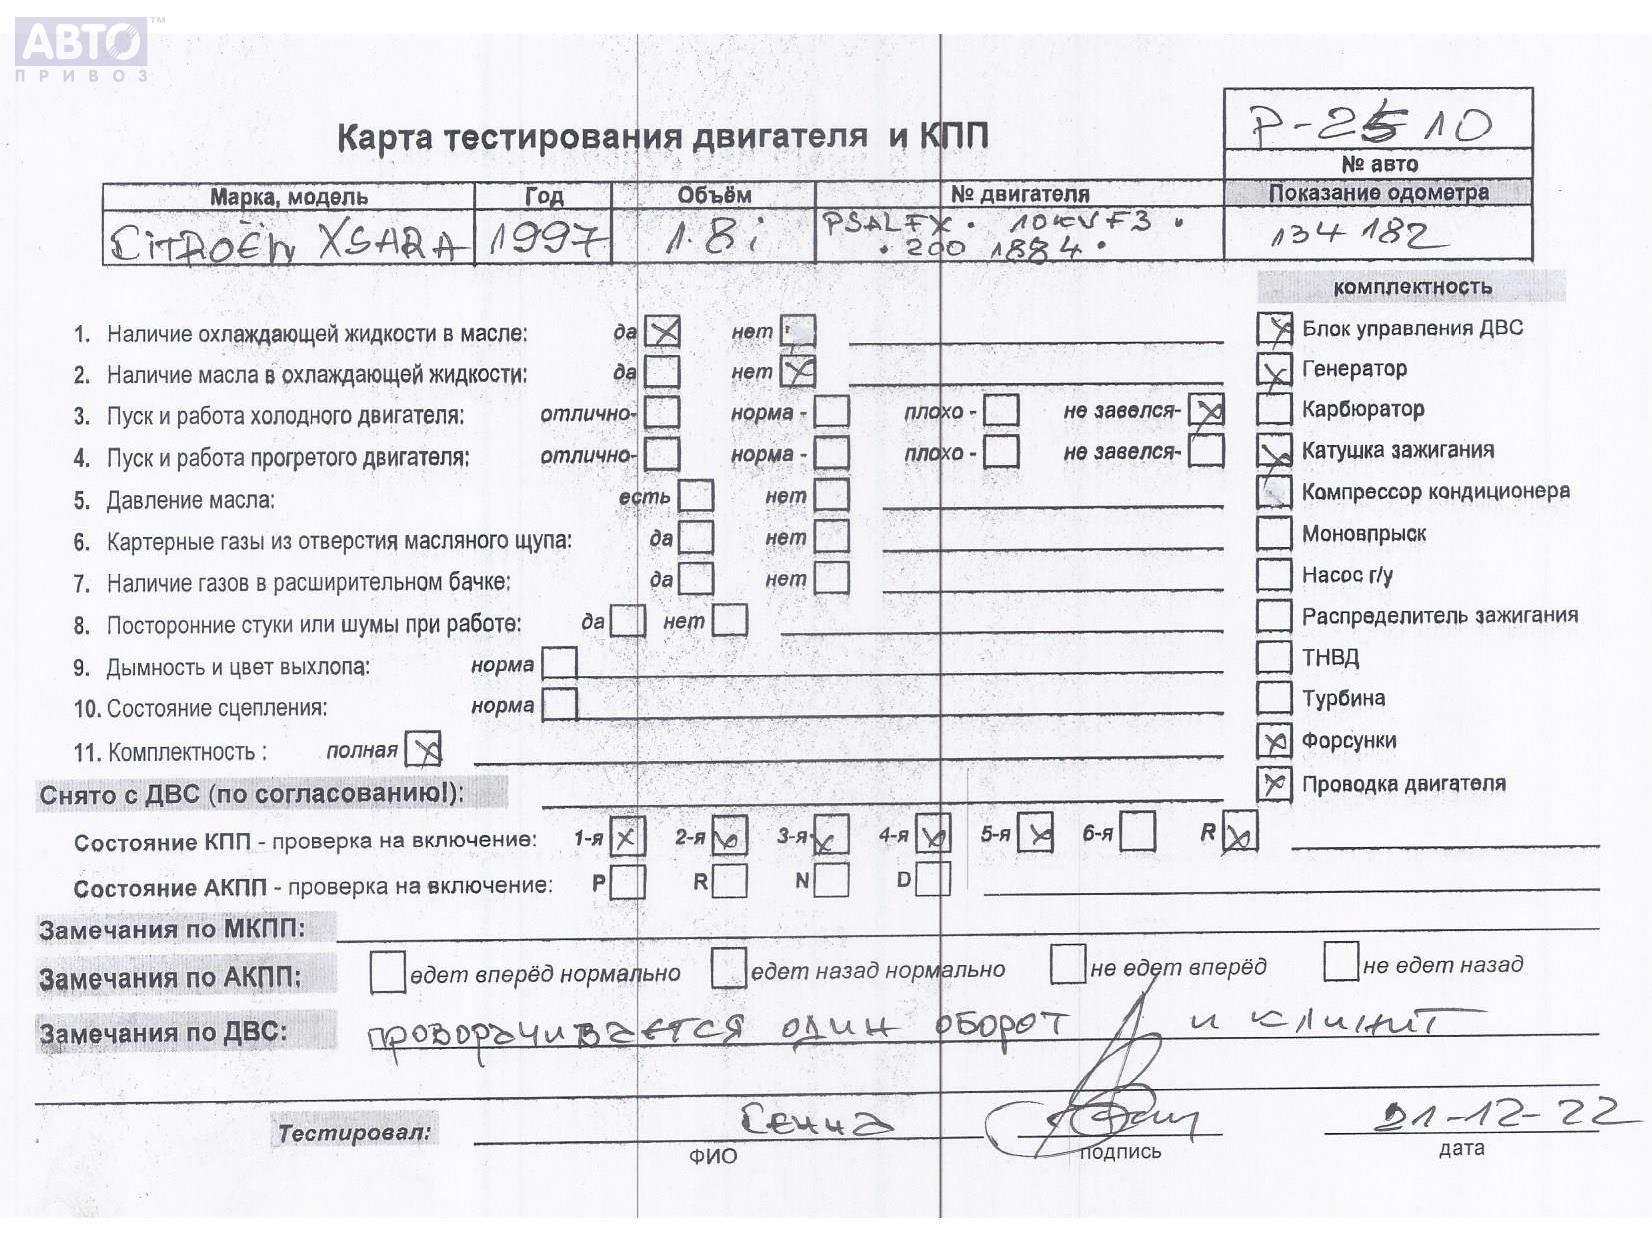 АВТО™
ПРИВОЗ
Карта тестирования двигателя и КПП
P-2510
№ авто
Марка, модель Год Объём № двигателя Показание одометра
CITROËN XSARA 1997 1.8i PSALFX · 10KVF3 · 134182
· 200 1884 ·
комплектность
1. Наличие охлаждающей жидкости в масле: да нет Блок управления ДВС
2. Наличие масла в охлаждающей жидкости: да нет Генератор
3. Пуск и работа холодного двигателя: отлично- норма - плохо - не завелся- Карбюратор
4. Пуск и работа прогретого двигателя: отлично- норма - плохо - не завелся- Катушка зажигания
5. Давление масла: есть нет Компрессор кондиционера
6. Картерные газы из отверстия масляного щупа: да нет Моновпрыск
7. Наличие газов в расширительном бачке: да нет Насос г/у
8. Посторонние стуки или шумы при работе: да нет Распределитель зажигания
9. Дымность и цвет выхлопа: норма ТНВД
10. Состояние сцепления: норма Турбина
11. Комплектность : полная Форсунки
Снято с ДВС (по согласованию!): Проводка двигателя
Состояние КПП - проверка на включение: 1-я 2-я 3-я 4-я 5-я 6-я R
Состояние АКПП - проверка на включение: P R N D
Замечания по МКПП:
Замечания по АКПП: едет вперёд нормально едет назад нормально не едет вперёд не едет назад
Замечания по ДВС: проворачивается один оборот и клинит
Тестировал: Сенча 21-12-22
ФИО подпись дата